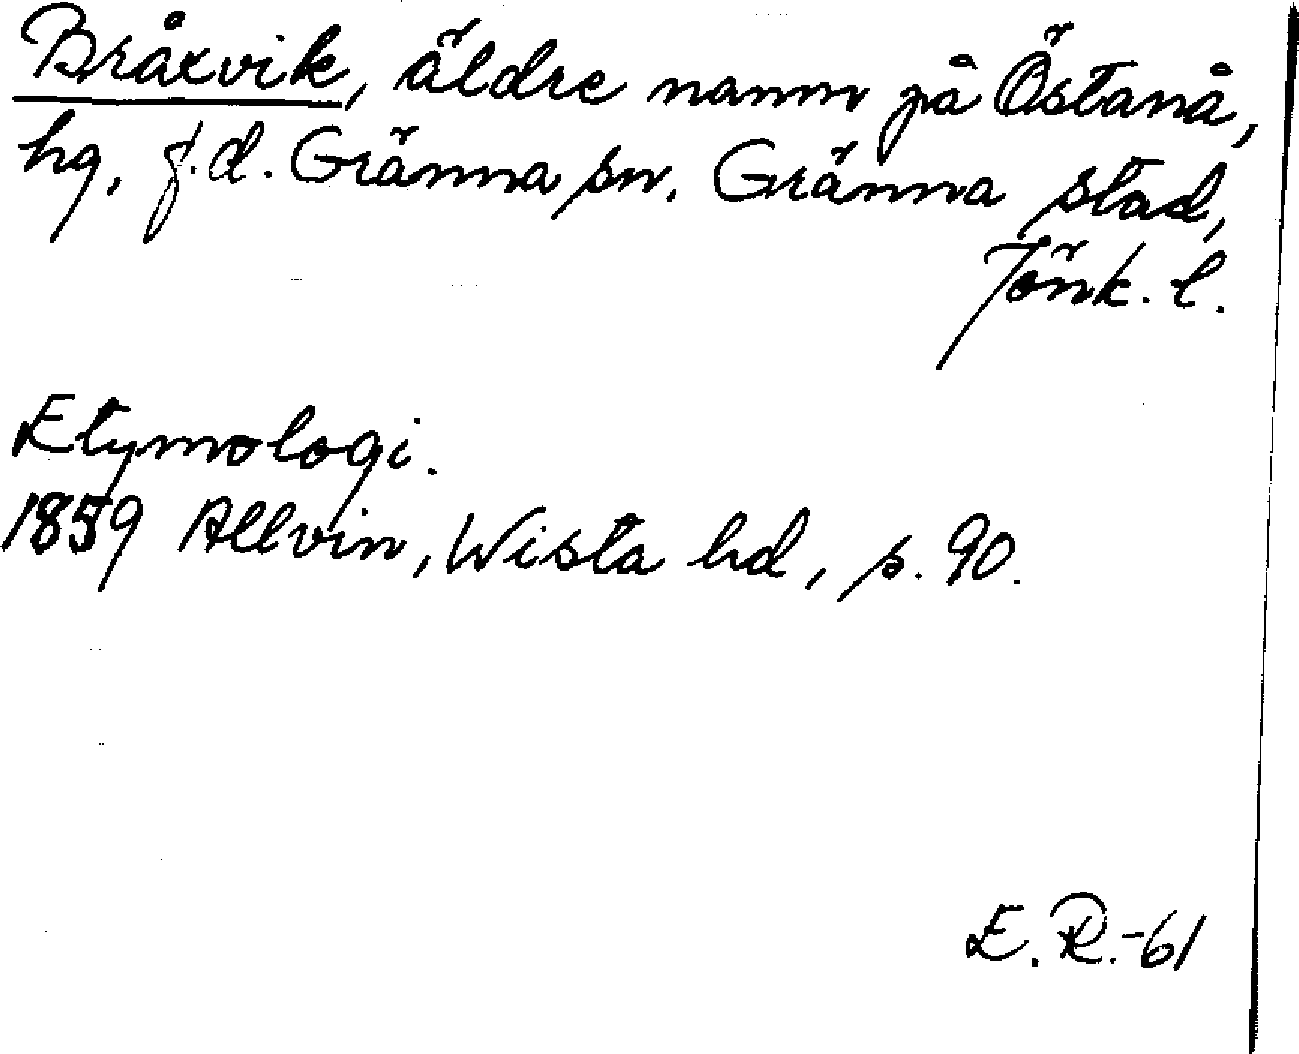 Bråxvik, äldre namn på Östanå,
hg, f.d. Gränna sn. Gränna stad,
Jönk. l.
Etymologi.
1859 Allvin, Wista hd, s. 90.
E. R.-61